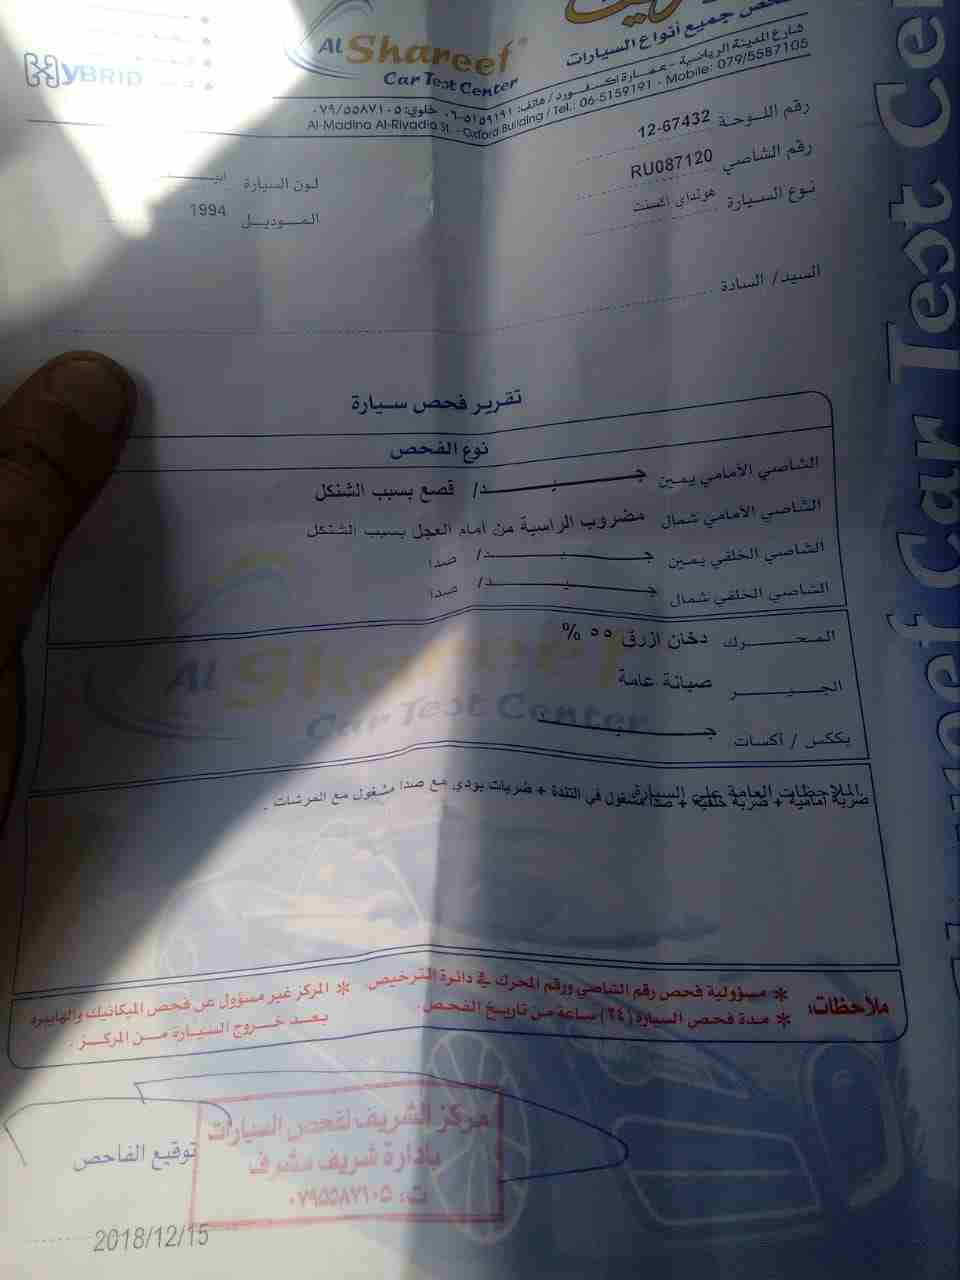 فحص جميع أنواع السيارات
AL Shareef
Car Test Center
HYBRID
شارع المدينة الرياضية - عمارة اكسفورد / هاتف: ٠٦-٥١٥٩١٩١ خلوي: ٠٧٩/٥٥٨٧١٠٥
Al-Madina Al-Riyadia St. - Oxford Building / Tel.: 06-5159191 - Mobile: 079/5587105
رقم اللوحة 12-67432
رقم الشاصي RU087120
لون السيارة
نوع السيارة هونداي اكسنت
الموديل 1994
السيد/ السادة
تقرير فحص سيارة
نوع الفحص
الشاصي الأمامي يمين جيد/ قصع بسبب الشنكل
الشاصي الأمامي شمال مضروب الراسية من امام العجل بسبب الشنكل
الشاصي الخلفي يمين جيد/ صدا
الشاصي الخلفي شمال جيد/ صدا
المحرك دخان ازرق ٥٥ %
الجير صيانة عامة
بككس / أكسات جيد
الملاحظات العامة على السيارة
ضربة امامية + ضربة خلفية + صدا مشغول في التندة + ضربات بودي مع صدا مشغول مع الفرشات .
ملاحظات:
* مسؤولية فحص رقم الشاصي ورقم المحرك في دائرة الترخيص.
* مدة فحص السيارة (٢٤) ساعة من تاريخ الفحص.
* المركز غير مسؤول عن فحص الميكانيك والهايبرد
بعد خروج السيارة من المركز.
مركز الشريف لفحص السيارات
بإدارة شريف مشرف
ت: ٠٧٩٥٥٨٧١٠٥
توقيع الفاحص
2018/12/15
AL Shareef
Car Test Center
Shareef Car Test Cen